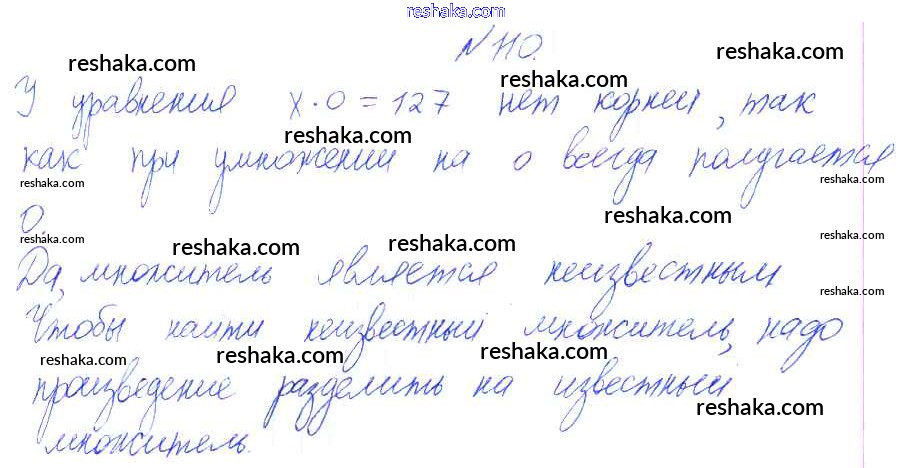 reshaka.com
N 110.
reshaka.com reshaka.com
У уравнения x · 0 = 127 нет корней, так
reshaka.com
как при умножении на 0 всегда получается
reshaka.com reshaka.com reshaka.com
0.
reshaka.com reshaka.com reshaka.com reshaka.com reshaka.com
Да, множитель является неизвестным
reshaka.com
Чтобы найти неизвестный множитель, надо
reshaka.com reshaka.com reshaka.com reshaka.com
произведение разделить на известный
reshaka.com
множитель.